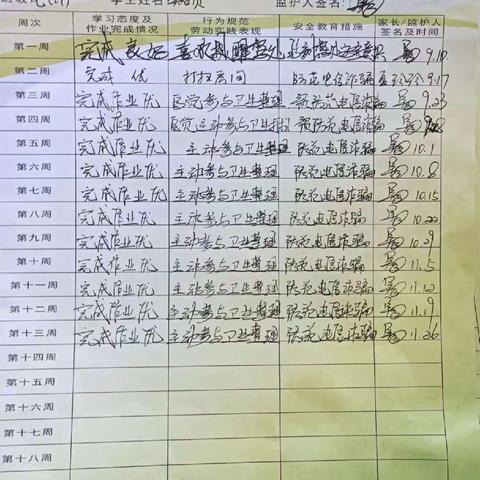 学生姓名 监护人签名:
周次 学习态度及作业完成情况 行为规范劳动实践表现 安全教育措施 家长/监护人签名及时间
第一周 完成良好 9.10
第二周 完成 优 打扫房间 防范电信诈骗 9.17
第三周 完成作业优 参与卫生整理 预防范电信诈骗 9.23
第四周 完成作业优 主动参与卫生 预防范电信诈骗
第五周 完成作业优 主动参与卫生整理 防范电信诈骗 10.1
第六周 完成作业优 主动参与卫生整理 防范电信诈骗 10.8
第七周 完成作业优 主动参与卫生整理 防范电信诈骗 10.15
第八周 完成作业优 主动参与卫生整理 防范电信诈骗 10.22
第九周 完成作业优 主动参与卫生整理 防范电信诈骗 10.29
第十周 完成作业优 主动参与卫生整理 防范电信诈骗 11.5
第十一周 完成作业优 主动参与卫生整理 防范电信诈骗 11.12
第十二周 完成作业优 主动参与卫生整理 防范电信诈骗 11.19
第十三周 完成作业优 主动参与卫生整理 防范电信诈骗 11.26
第十四周
第十五周
第十六周
第十七周
第十八周